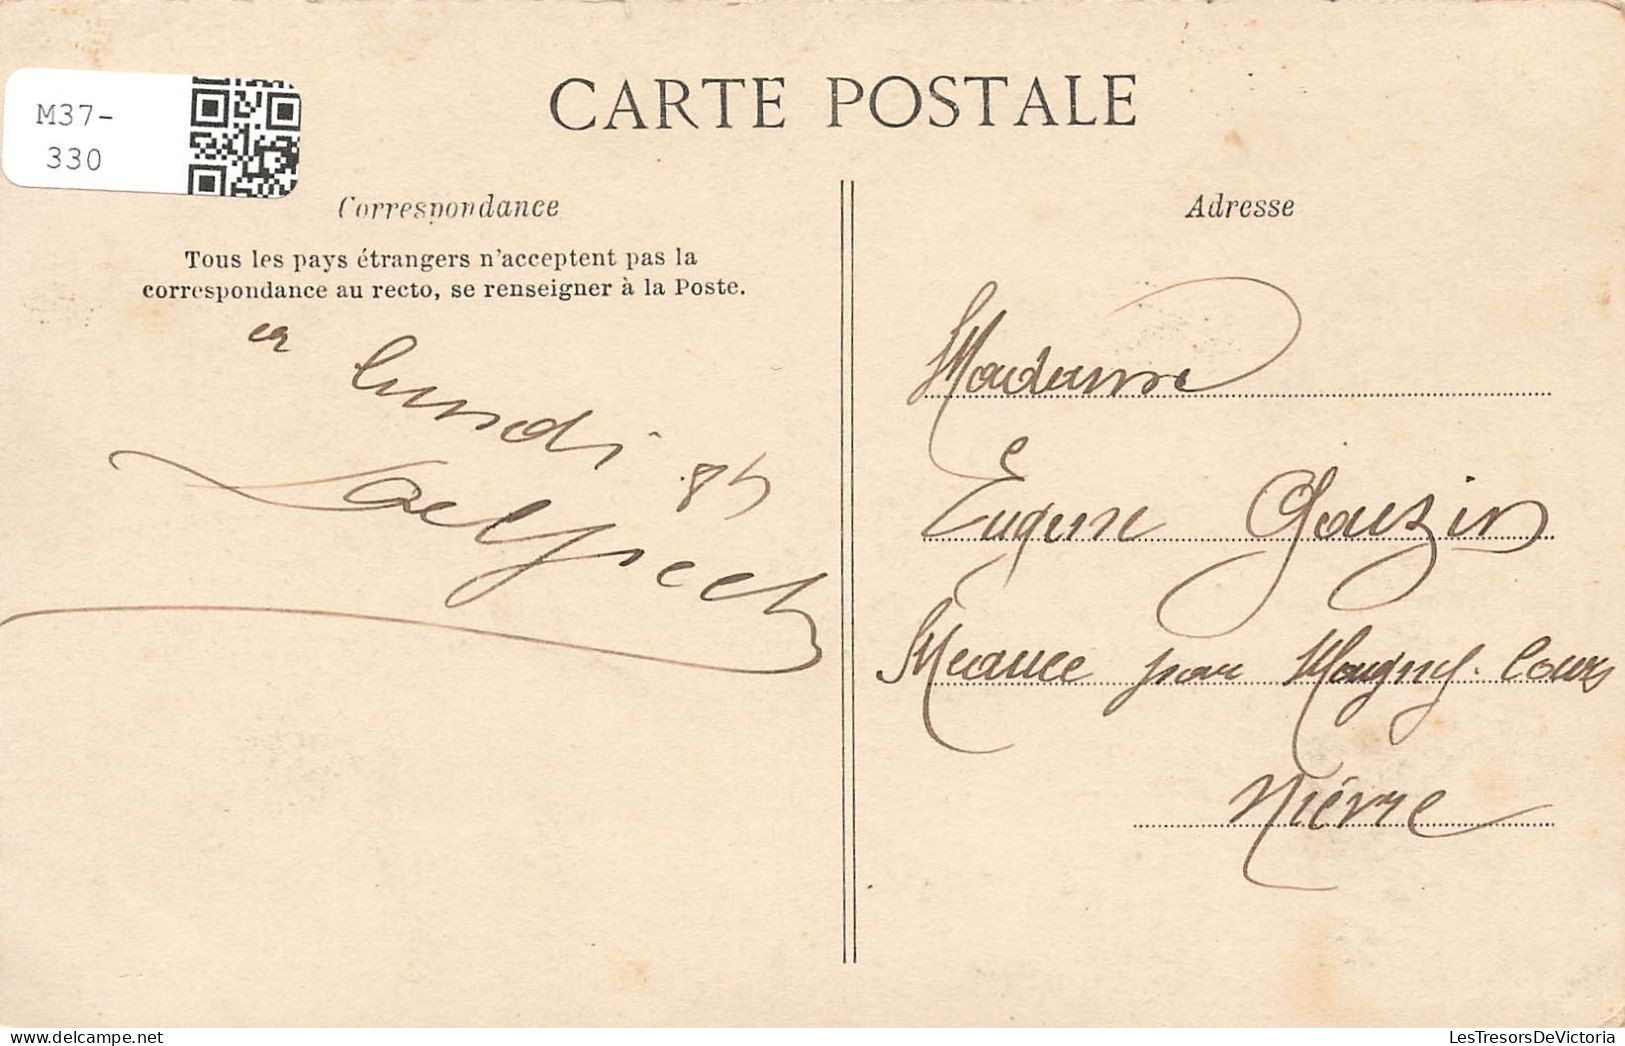 M37-
330
CARTE POSTALE
Correspondance
Tous les pays étrangers n'acceptent pas la
correspondance au recto, se renseigner à la Poste.
a lundi
Adresse
Madame
Eugene Gauzin
Meauce par Magny-Cours
Nièvre
LesTresorsDeVictoria
delcampe.net